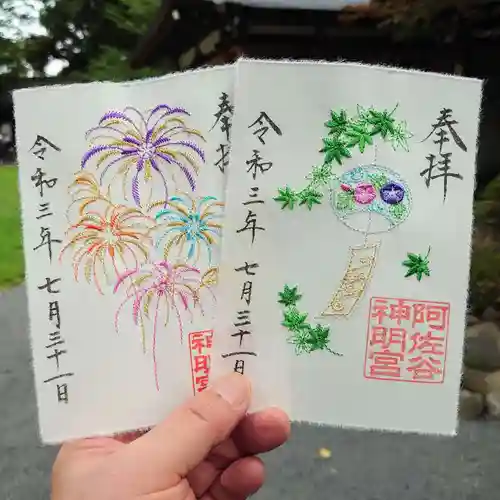 奉拝
阿佐谷
神明宮
令和三年 七月三十一日
奉拝
神明宮
令和三年 七月三十一日